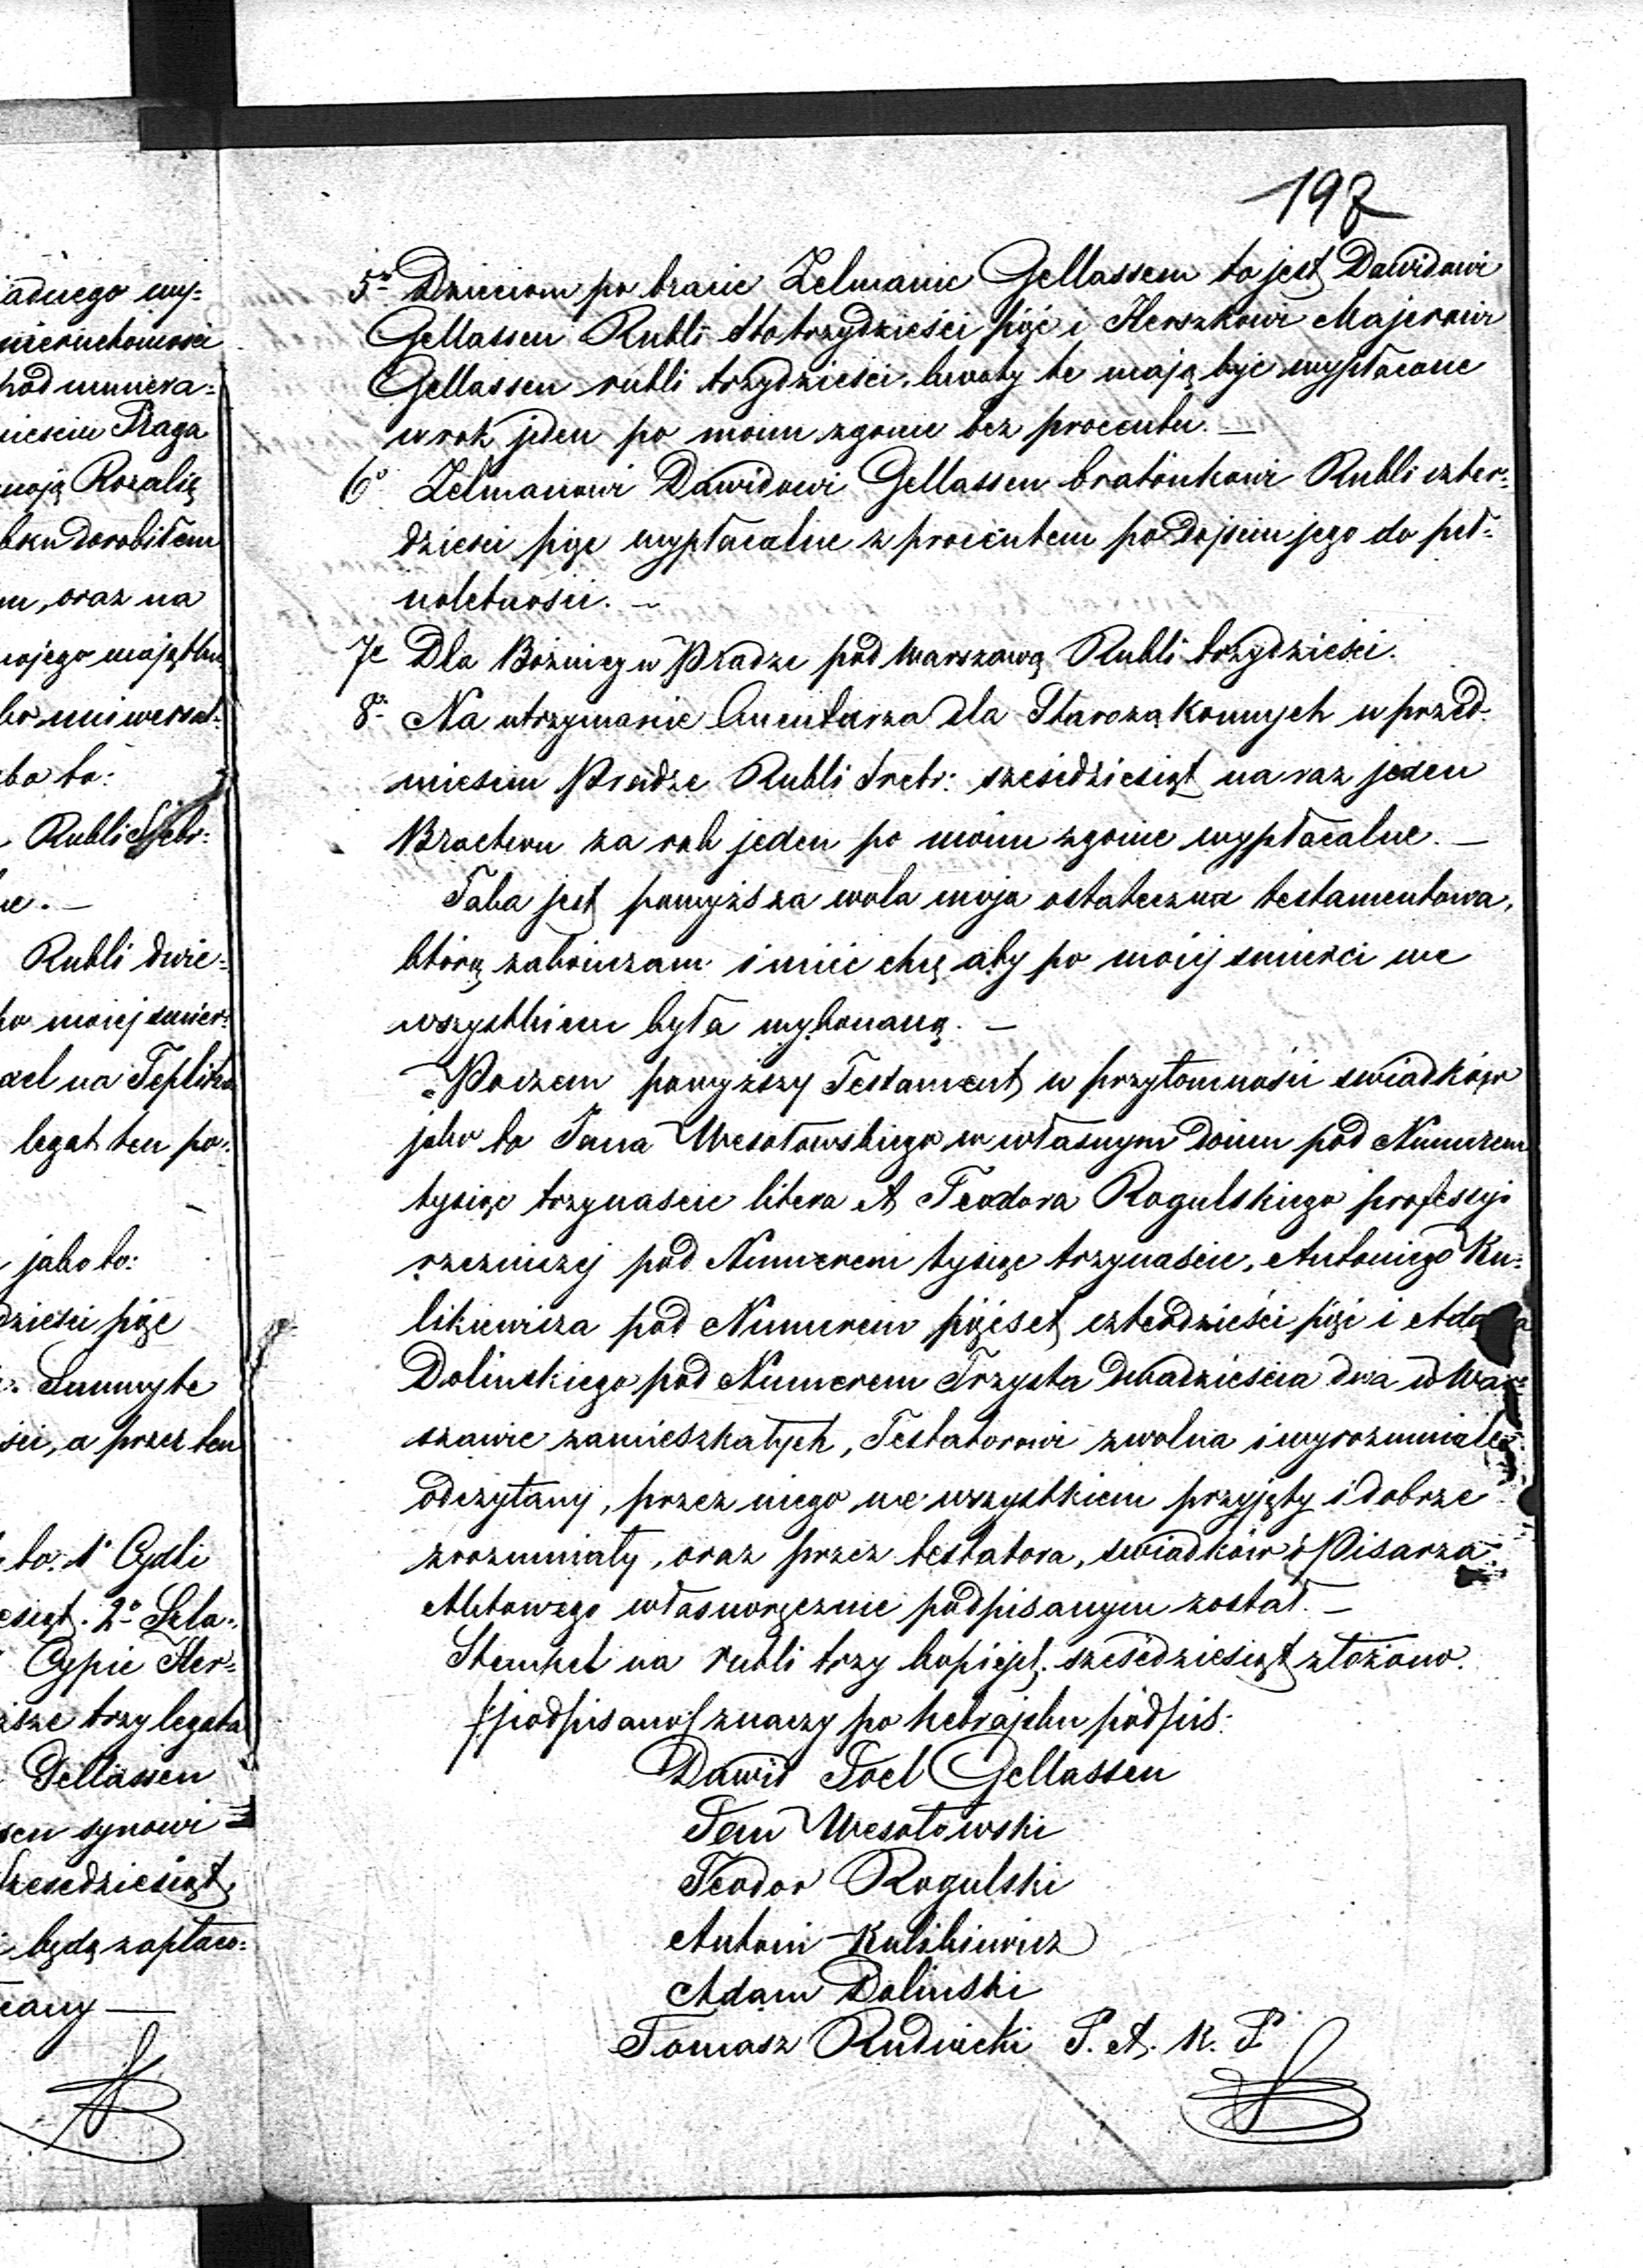 197
5o Dzieciom po bracie Zelmanie Gellassem to jest Dawidowi
Gellassen Rubli Stotrzydzieści pięć i Herszkowi Majerowi
Gellassen rubli trzydzieści. kwoty te mają być wypłacone
w rok jeden po moim zgonie bez procentu. —
6o Zelmanowi Dawidowi Gellassen bratónkowi Rubli czter=
dzieści pięć wypłacalne z procentem po dojściu jego do peł=
noletności. —
7e Dla Bóżnicy w Pradze pod Warszawą Rubli trzydzieści.
8o Na utrzymanie Cmentarza dla Starozakonnych w przed=
mieściu Pradze Rubli Srebr: sześćdziesiąt na raz jeden
Bractwu za rok jeden po moim zgonie wypłacalne. —
Taka jest powyższa wola moja ostateczna testamentowa,
którą zakończam i mieć chcę aby po mojéj śmierci we
wszystkiem była wykonaną. —
Poczem powyższy Testament w przytomności świadków
jako to Jana Wesołowskiego w własnym domu pod Numerem
tysiąc trzynaście litera A Teodora Rogulskiego professyi
rzezniczej pod Numerem tysiąc trzynaście, Antoniego Ku=
likiewicza pod Numerem pięćset czterdzieści pięć i Adama
Dolinskiego pod Numerem Trzysta dwadzieścia dwa w War=
szawie zamieszkałych, Testatorowi zwolna i wyrozumiale
odczytany, przez niego we wszystkiem przyjęty i dobrze
zrozumiały, oraz przez testatora, świadków i Pisarza
Aktowego własnoręcznie podpisanym został. —
Stempel na rubli trzy kopiejek sześćdziesiąt złożono.
(podpisano) znaczy po hebrajsku podpis:
Dawid Joel Gellassen
Jan Wesołowski
Teodor Rogulski
Antoni Kulikiewicz
Adam Dolinski
Tomasz Rudnicki P. A. K. P.
adnego wy=
nieruchomosci
pod numera=
mieściu Praga
moją Rozalię
m, oraz na
mojego majątku
bo to:
Rubli Srebr:
Rubli dwie=
po mojej śmier=
legat ten po=
jako to:
dzieści pięć
Summy te
ści, a przez ten
to: 1o Cydli
Cypie Her=
ższe trzy legata
Gellassen
sen synowi
Sześćdziesiąt
będą zapłaco=